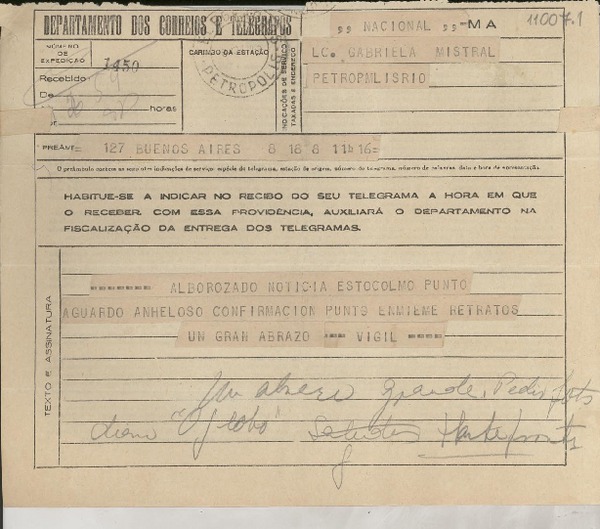 DEPARTAMENTO DOS CORREIOS E TELEGRAFOS
,, NACIONAL ,, = MA
11007.1
NÚMERO DE EXPEDIÇÃO
1450
CARIMBO DA ESTAÇÃO
PETROPOLIS
INDICAÇÕES DE SERVIÇO TAXADAS E ENDEREÇO
LC. GABRIELA MISTRAL
PETROPMLISRIO
Recebido
De
horas
PREÂM.=
127 BUENOS AIRES 8 18 8 1114 16=
O preâmbulo contém as seguintes indicações de serviço: espécie do telegrama, estação de origem, número do telegrama, número de palavras, data e hora da apresentação.
HABITUE-SE A INDICAR NO RECIBO DO SEU TELEGRAMA A HORA EM QUE
O RECEBER. COM ESSA PROVIDÊNCIA, AUXILIARÁ O DEPARTAMENTO NA
FISCALIZAÇÃO DA ENTREGA DOS TELEGRAMAS.
TEXTO E ASSINATURA
ALBOROZADO NOTICIA ESTOCOLMO PUNTO
AGUARDO ANHELOSO CONFIRMACION PUNTO ENMIEME RETRATOS
UN GRAN ABRAZO = VIGIL =
Un abrazo grande. Pedir foto
diario "O globo"